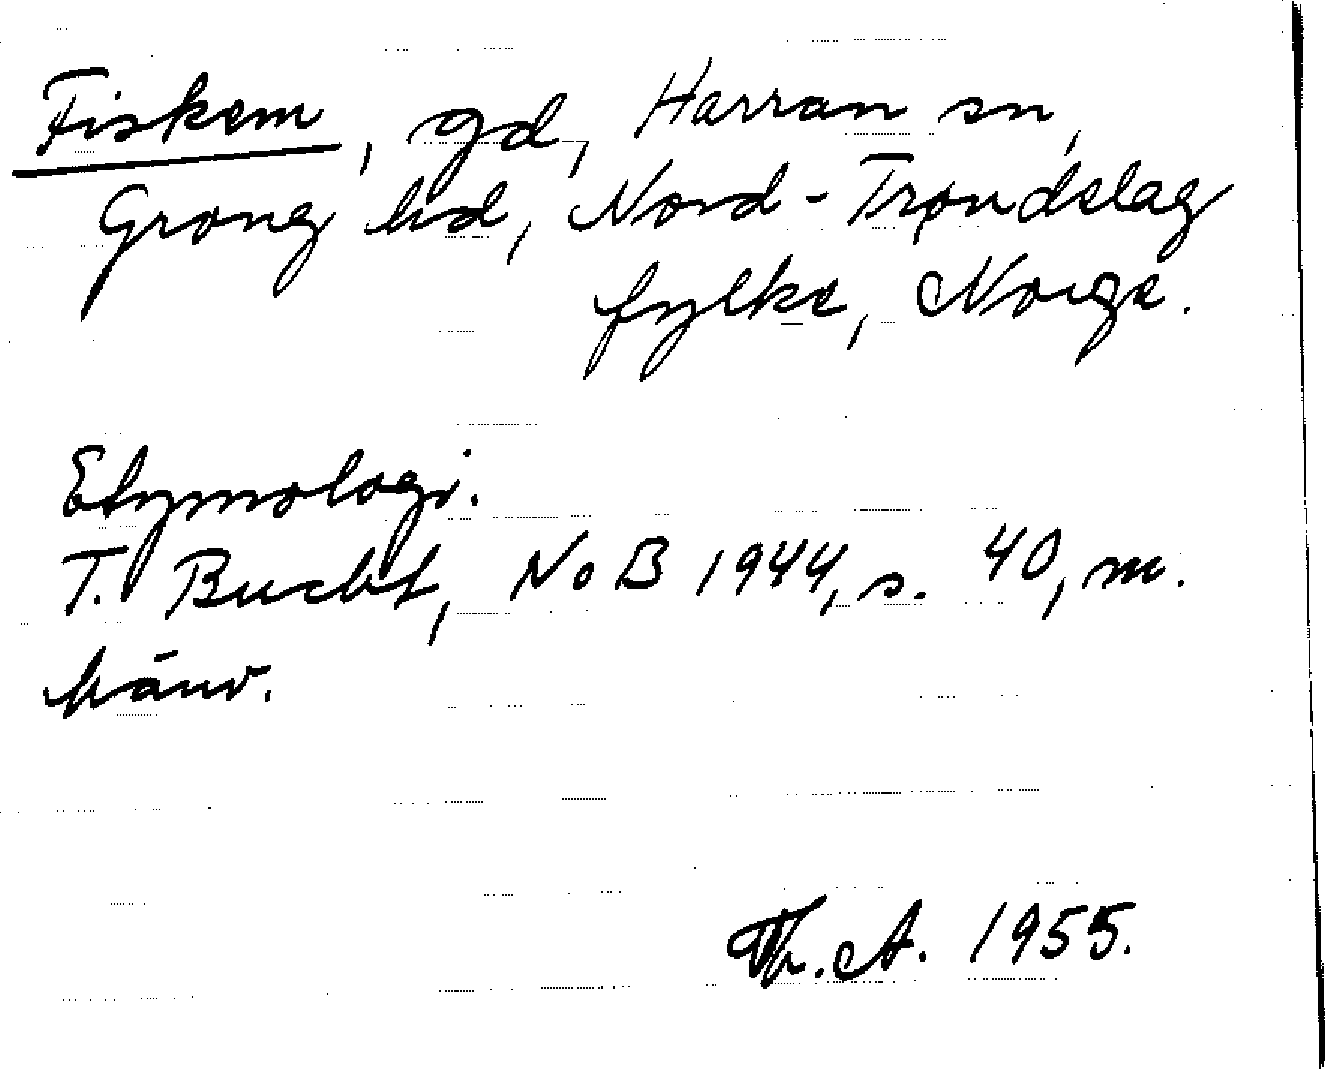 Fiskem, gd, Harran sn,
Grong hd, Nord-Trøndelag
fylke, Norge.
Etymologi.
T. Bucht, NoB 1944, s. 40, m.
hänv.
Th. A. 1955.